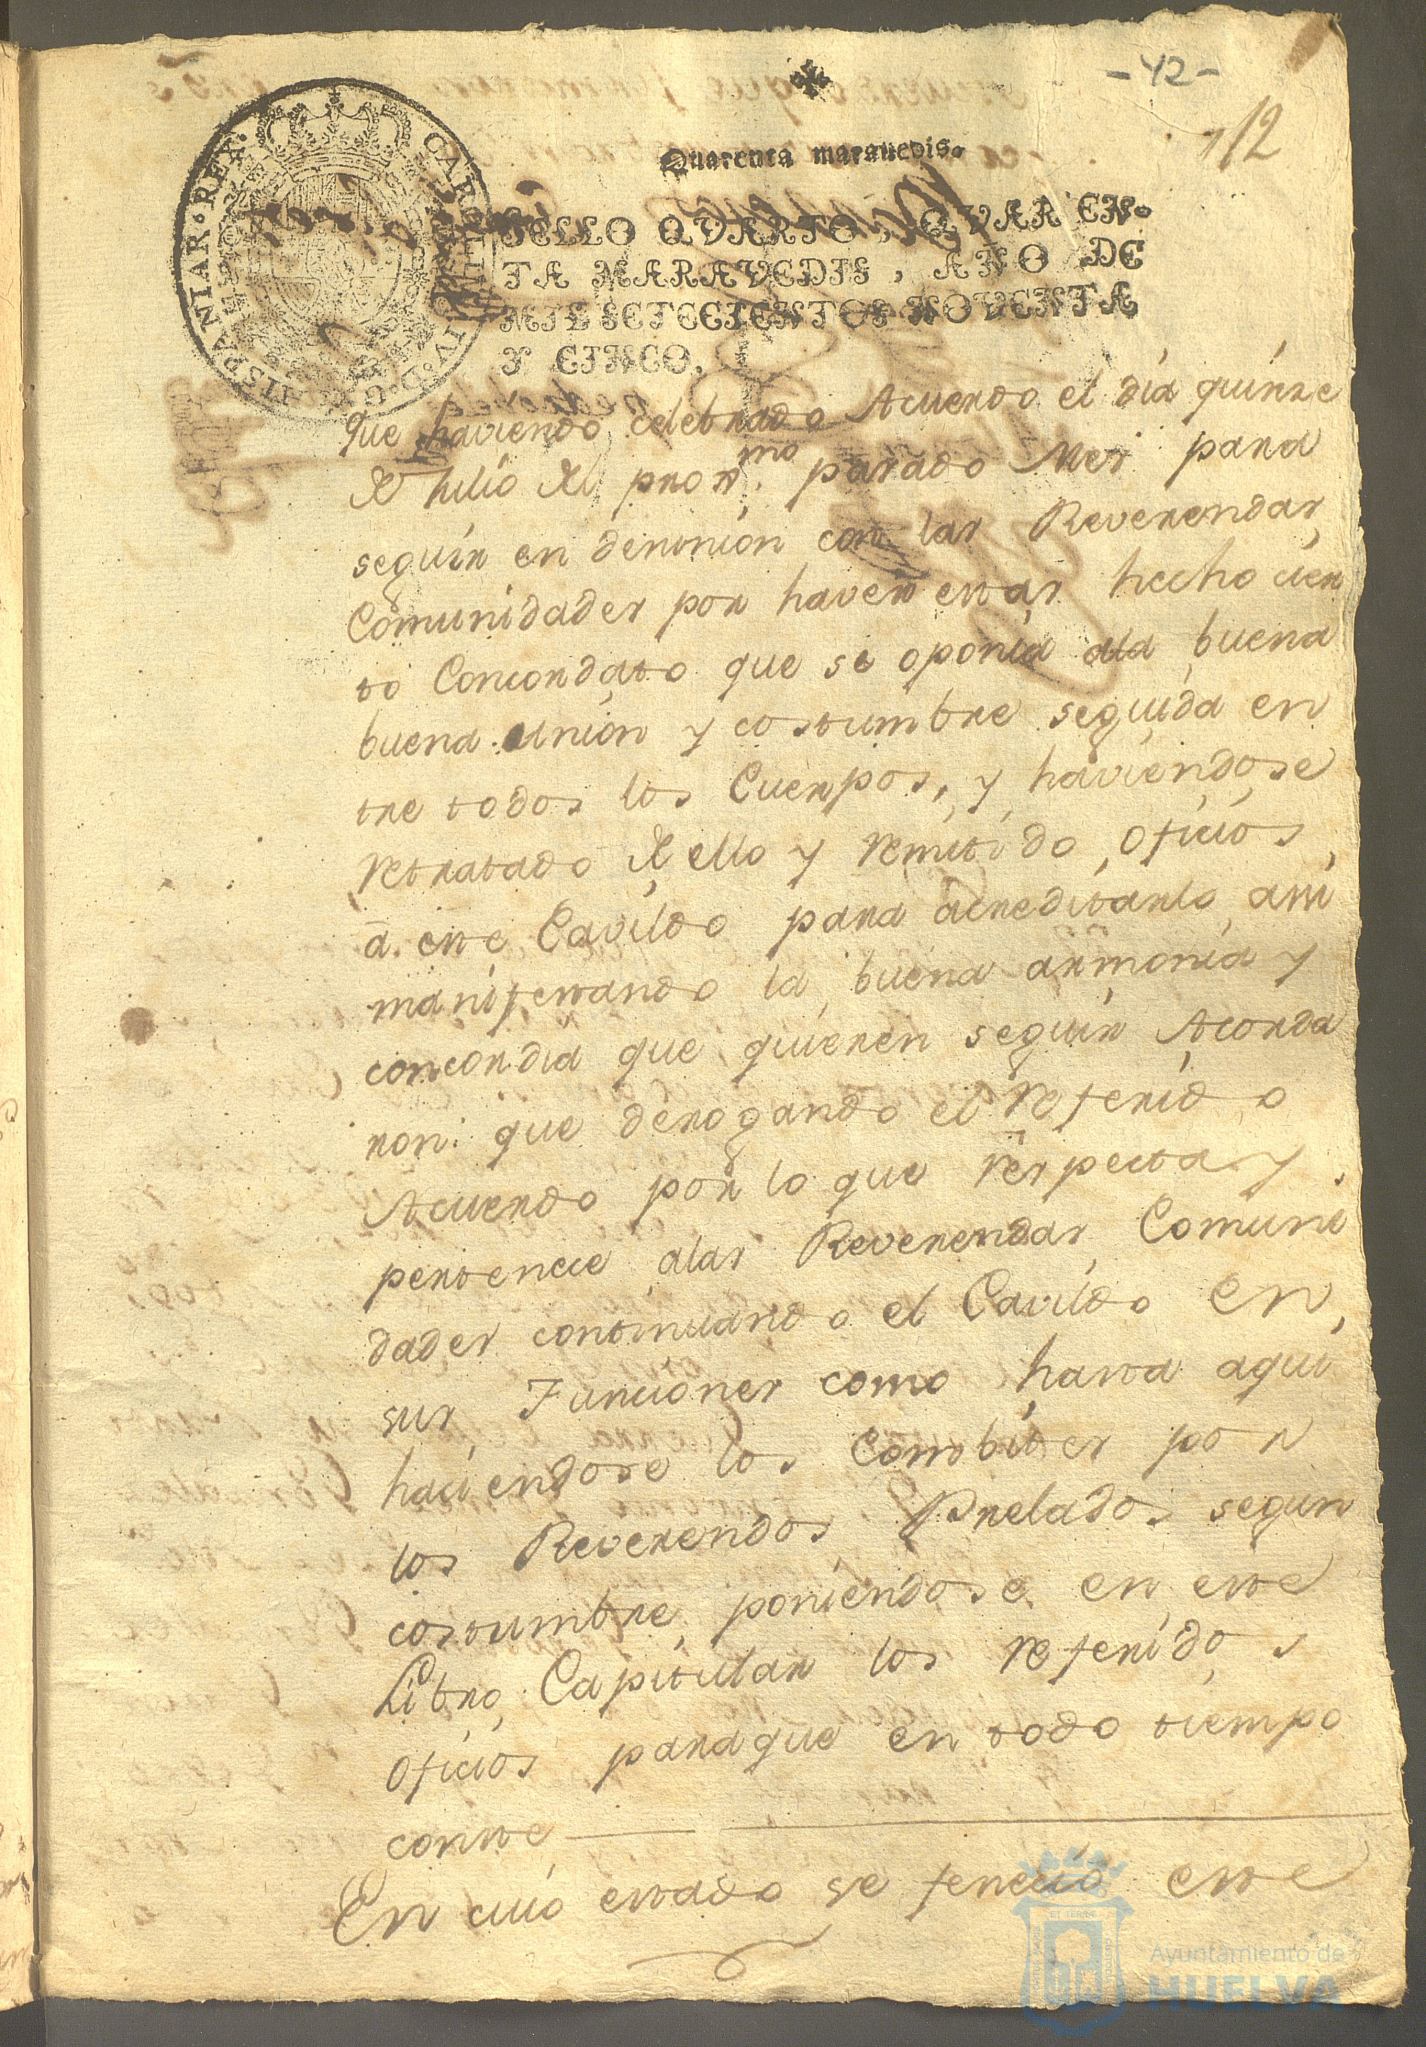 - 42 -
112
Quarenta marauedis.
SELLO QVARTO, QVAREN-
TA MARAVEDIS, AÑO DE
MIL SETECIENTOS NOVENTA
Y CINCO.
HISPANIAR·REX·
CAROLVS·IV·D·G·
que haviendo celebrado Acuerdo el dia quinze
de Julio del prox.mo pasado Mes para
seguir en desunion con las Reverendas
Comunidades por haver estas hecho cier
to Concordato que se oponia ala buena
buena union y costumbre seguida en
tre todos los Cuerpos, y haviendose
retratado de ello y remitido oficios
a este Cavildo para acreditarlo assi
manifestando la buena armonia y
concordia que quieren seguir Acorda
ron: que derogando el referido
Acuerdo por lo que respecta y
pertenece alas Reverendas Comuni
dades continuando el Cavildo en
sus Funciones como hasta aqui
haciendose los Combites por
los Reverendos Prelados segun
costumbre poniendose en este
Libro Capitular los referidos
oficios paraque en todo tiempo
conste
En cuio estado se fenecio este
Ayuntamiento de
HUELVA